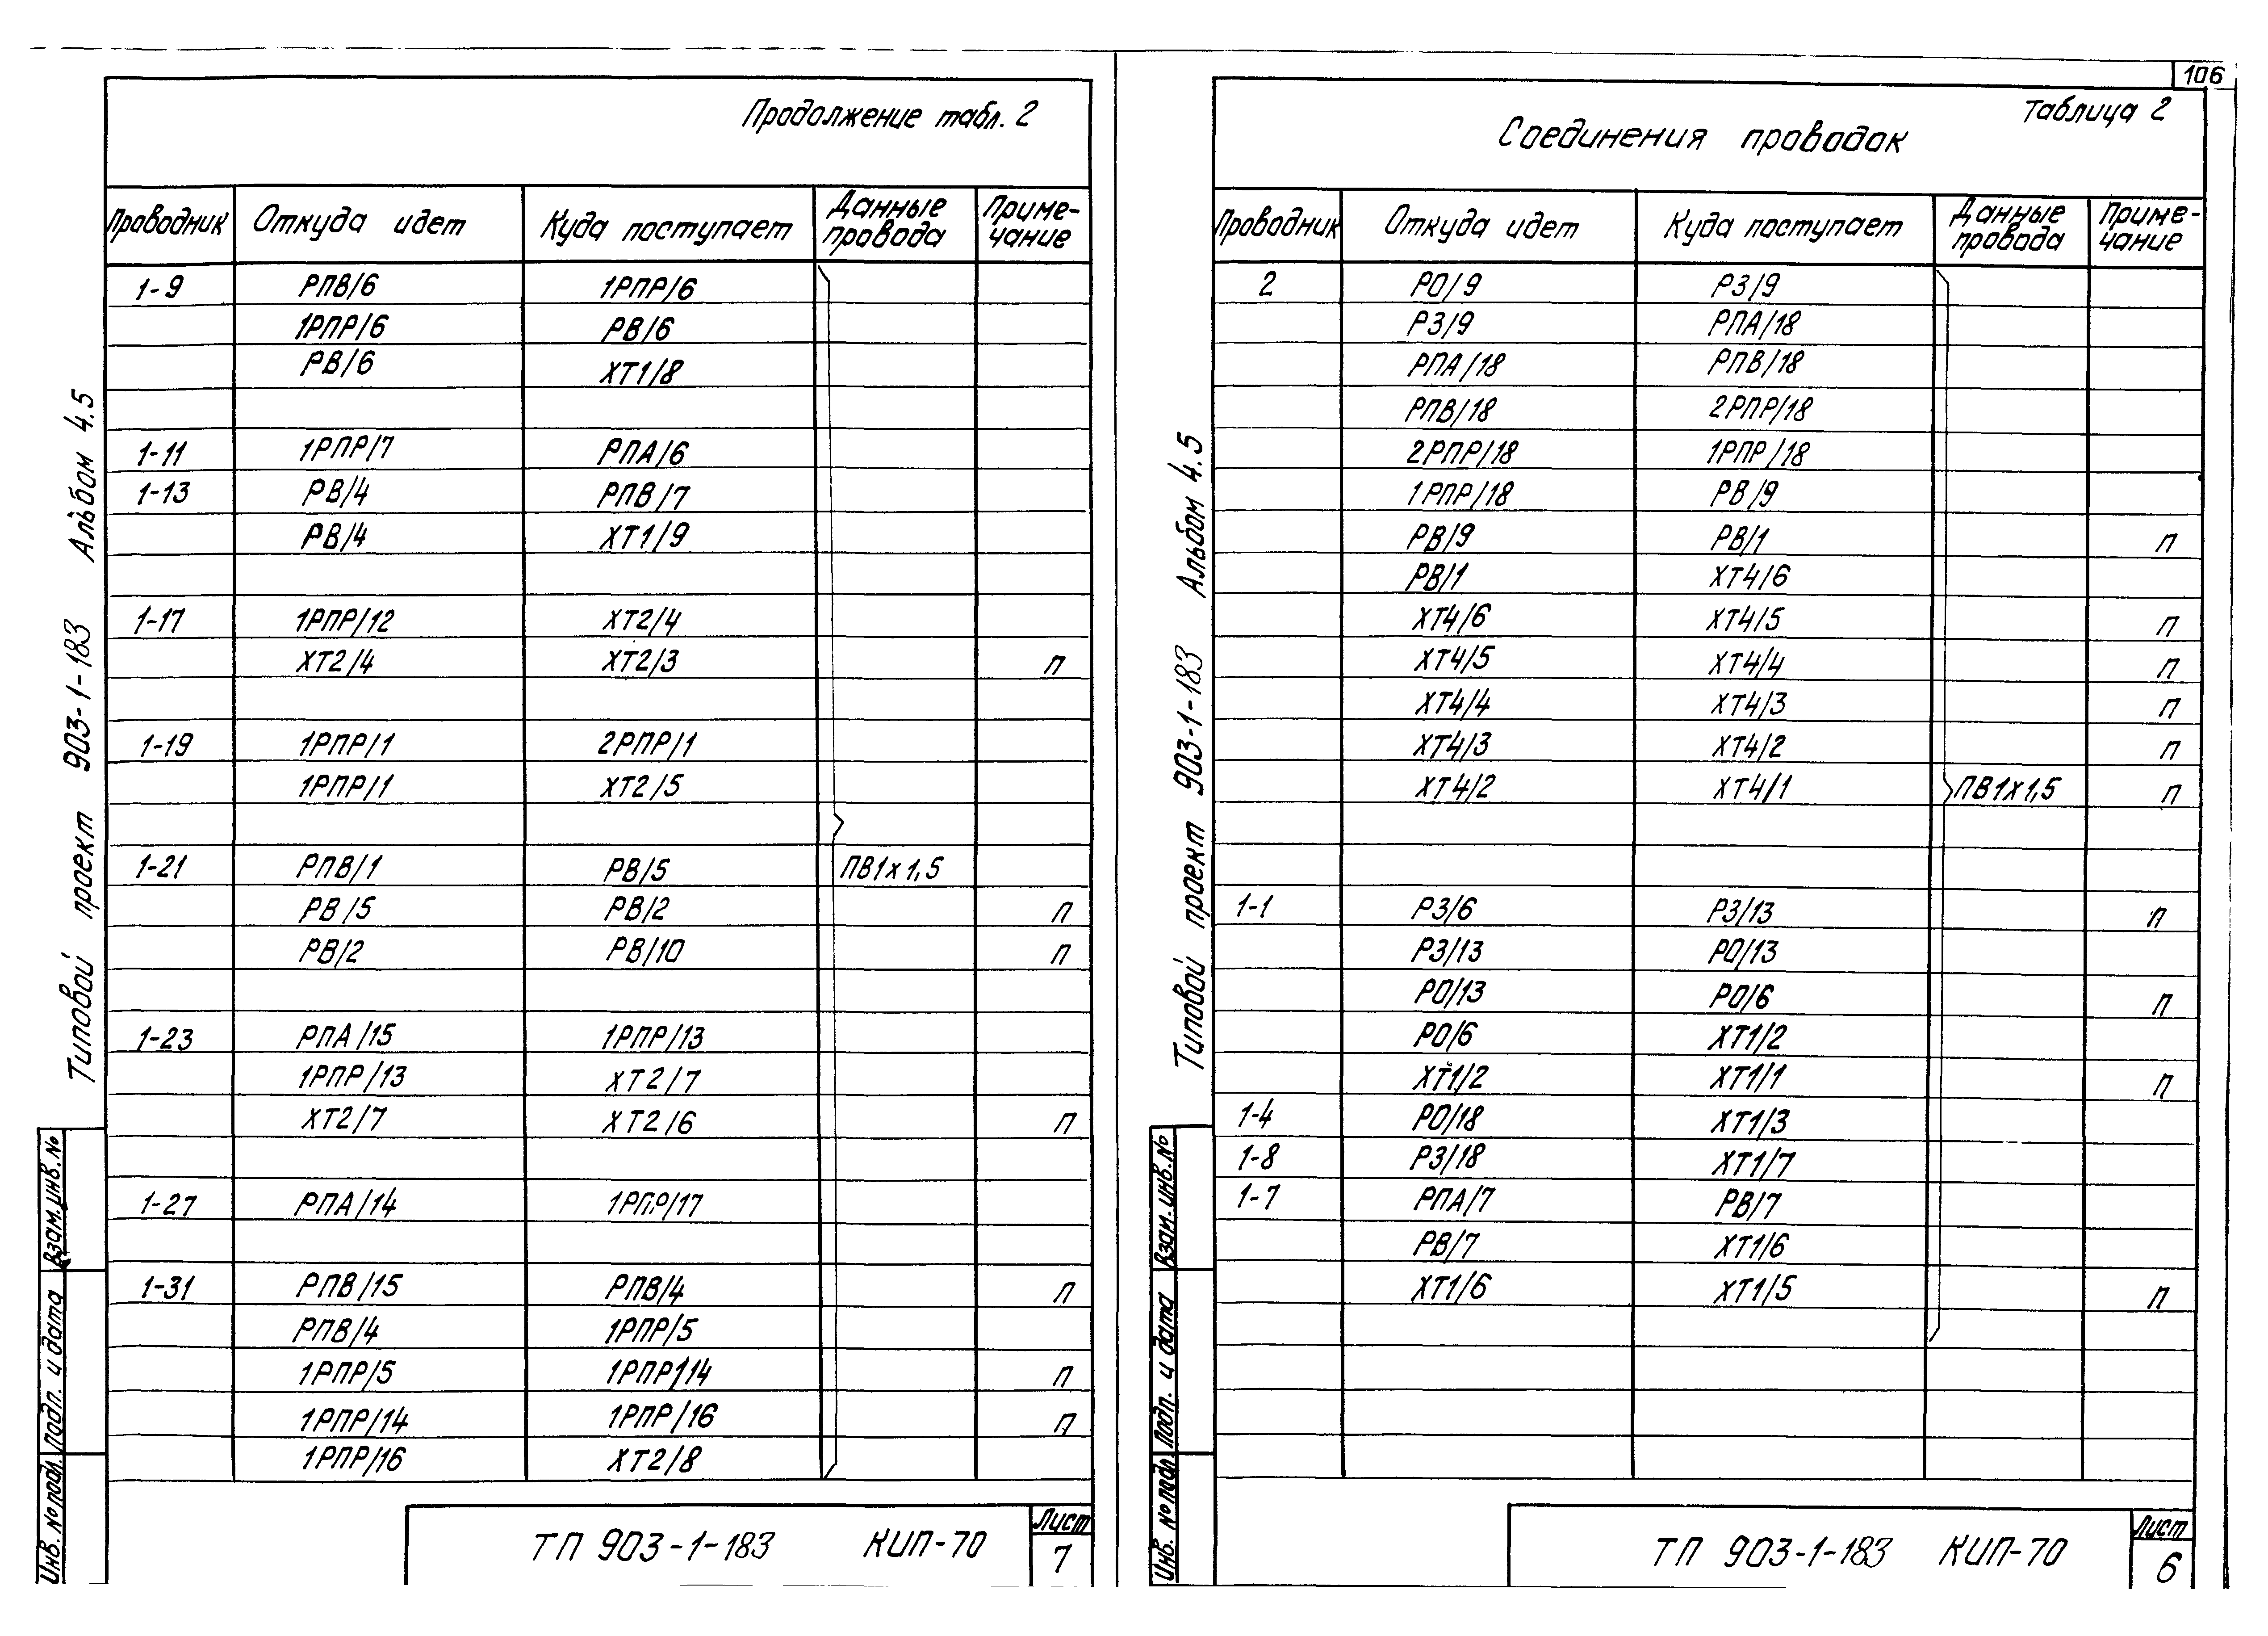 Продолжение табл. 2
Проводник Откуда идет Куда поступает Данные провода Приме-чание
1-9 РПВ/6 1РПР/6
1РПР/6 РВ/6
РВ/6 ХТ1/8
1-11 1РПР/7 РПА/6
1-13 РВ/4 РПВ/7
РВ/4 ХТ1/9
1-17 1РПР/12 ХТ2/4
ХТ2/4 ХТ2/3 п
1-19 1РПР/1 2РПР/1
1РПР/1 ХТ2/5
1-21 РПВ/1 РВ/5 ПВ1х1,5
РВ/5 РВ/2 п
РВ/2 РВ/10 п
1-23 РПА/15 1РПР/13
1РПР/13 ХТ2/7
ХТ2/7 ХТ2/6 п
1-27 РПА/14 1РПР/17
1-31 РПВ/15 РПВ/4 п
РПВ/4 1РПР/5
1РПР/5 1РПР/14 п
1РПР/14 1РПР/16 п
1РПР/16 ХТ2/8
Типовой проект 903-1-183 Альбом 4.5
Инв. № подл. Подп. и дата Взам. инв. №
ТП 903-1-183 КИП-70
Лист
7
106
Таблица 2
Соединения проводок
Проводник Откуда идет Куда поступает Данные провода Приме-чание
2 РО/9 РЗ/9
РЗ/9 РПА/18
РПА/18 РПВ/18
РПВ/18 2РПР/18
2РПР/18 1РПР/18
1РПР/18 РВ/9
РВ/9 РВ/1 п
РВ/1 ХТ4/6
ХТ4/6 ХТ4/5 п
ХТ4/5 ХТ4/4 п
ХТ4/4 ХТ4/3 п
ХТ4/3 ХТ4/2 п
ХТ4/2 ХТ4/1 ПВ1х1,5 п
1-1 РЗ/6 РЗ/13 п
РЗ/13 РО/13
РО/13 РО/6 п
РО/6 ХТ1/2
ХТ1/2 ХТ1/1 п
1-4 РО/18 ХТ1/3
1-8 РЗ/18 ХТ1/7
1-7 РПА/7 РВ/7
РВ/7 ХТ1/6
ХТ1/6 ХТ1/5 п
Типовой проект 903-1-183 Альбом 4.5
Инв. № подл. Подп. и дата Взам. инв. №
ТП 903-1-183 КИП-70
Лист
6